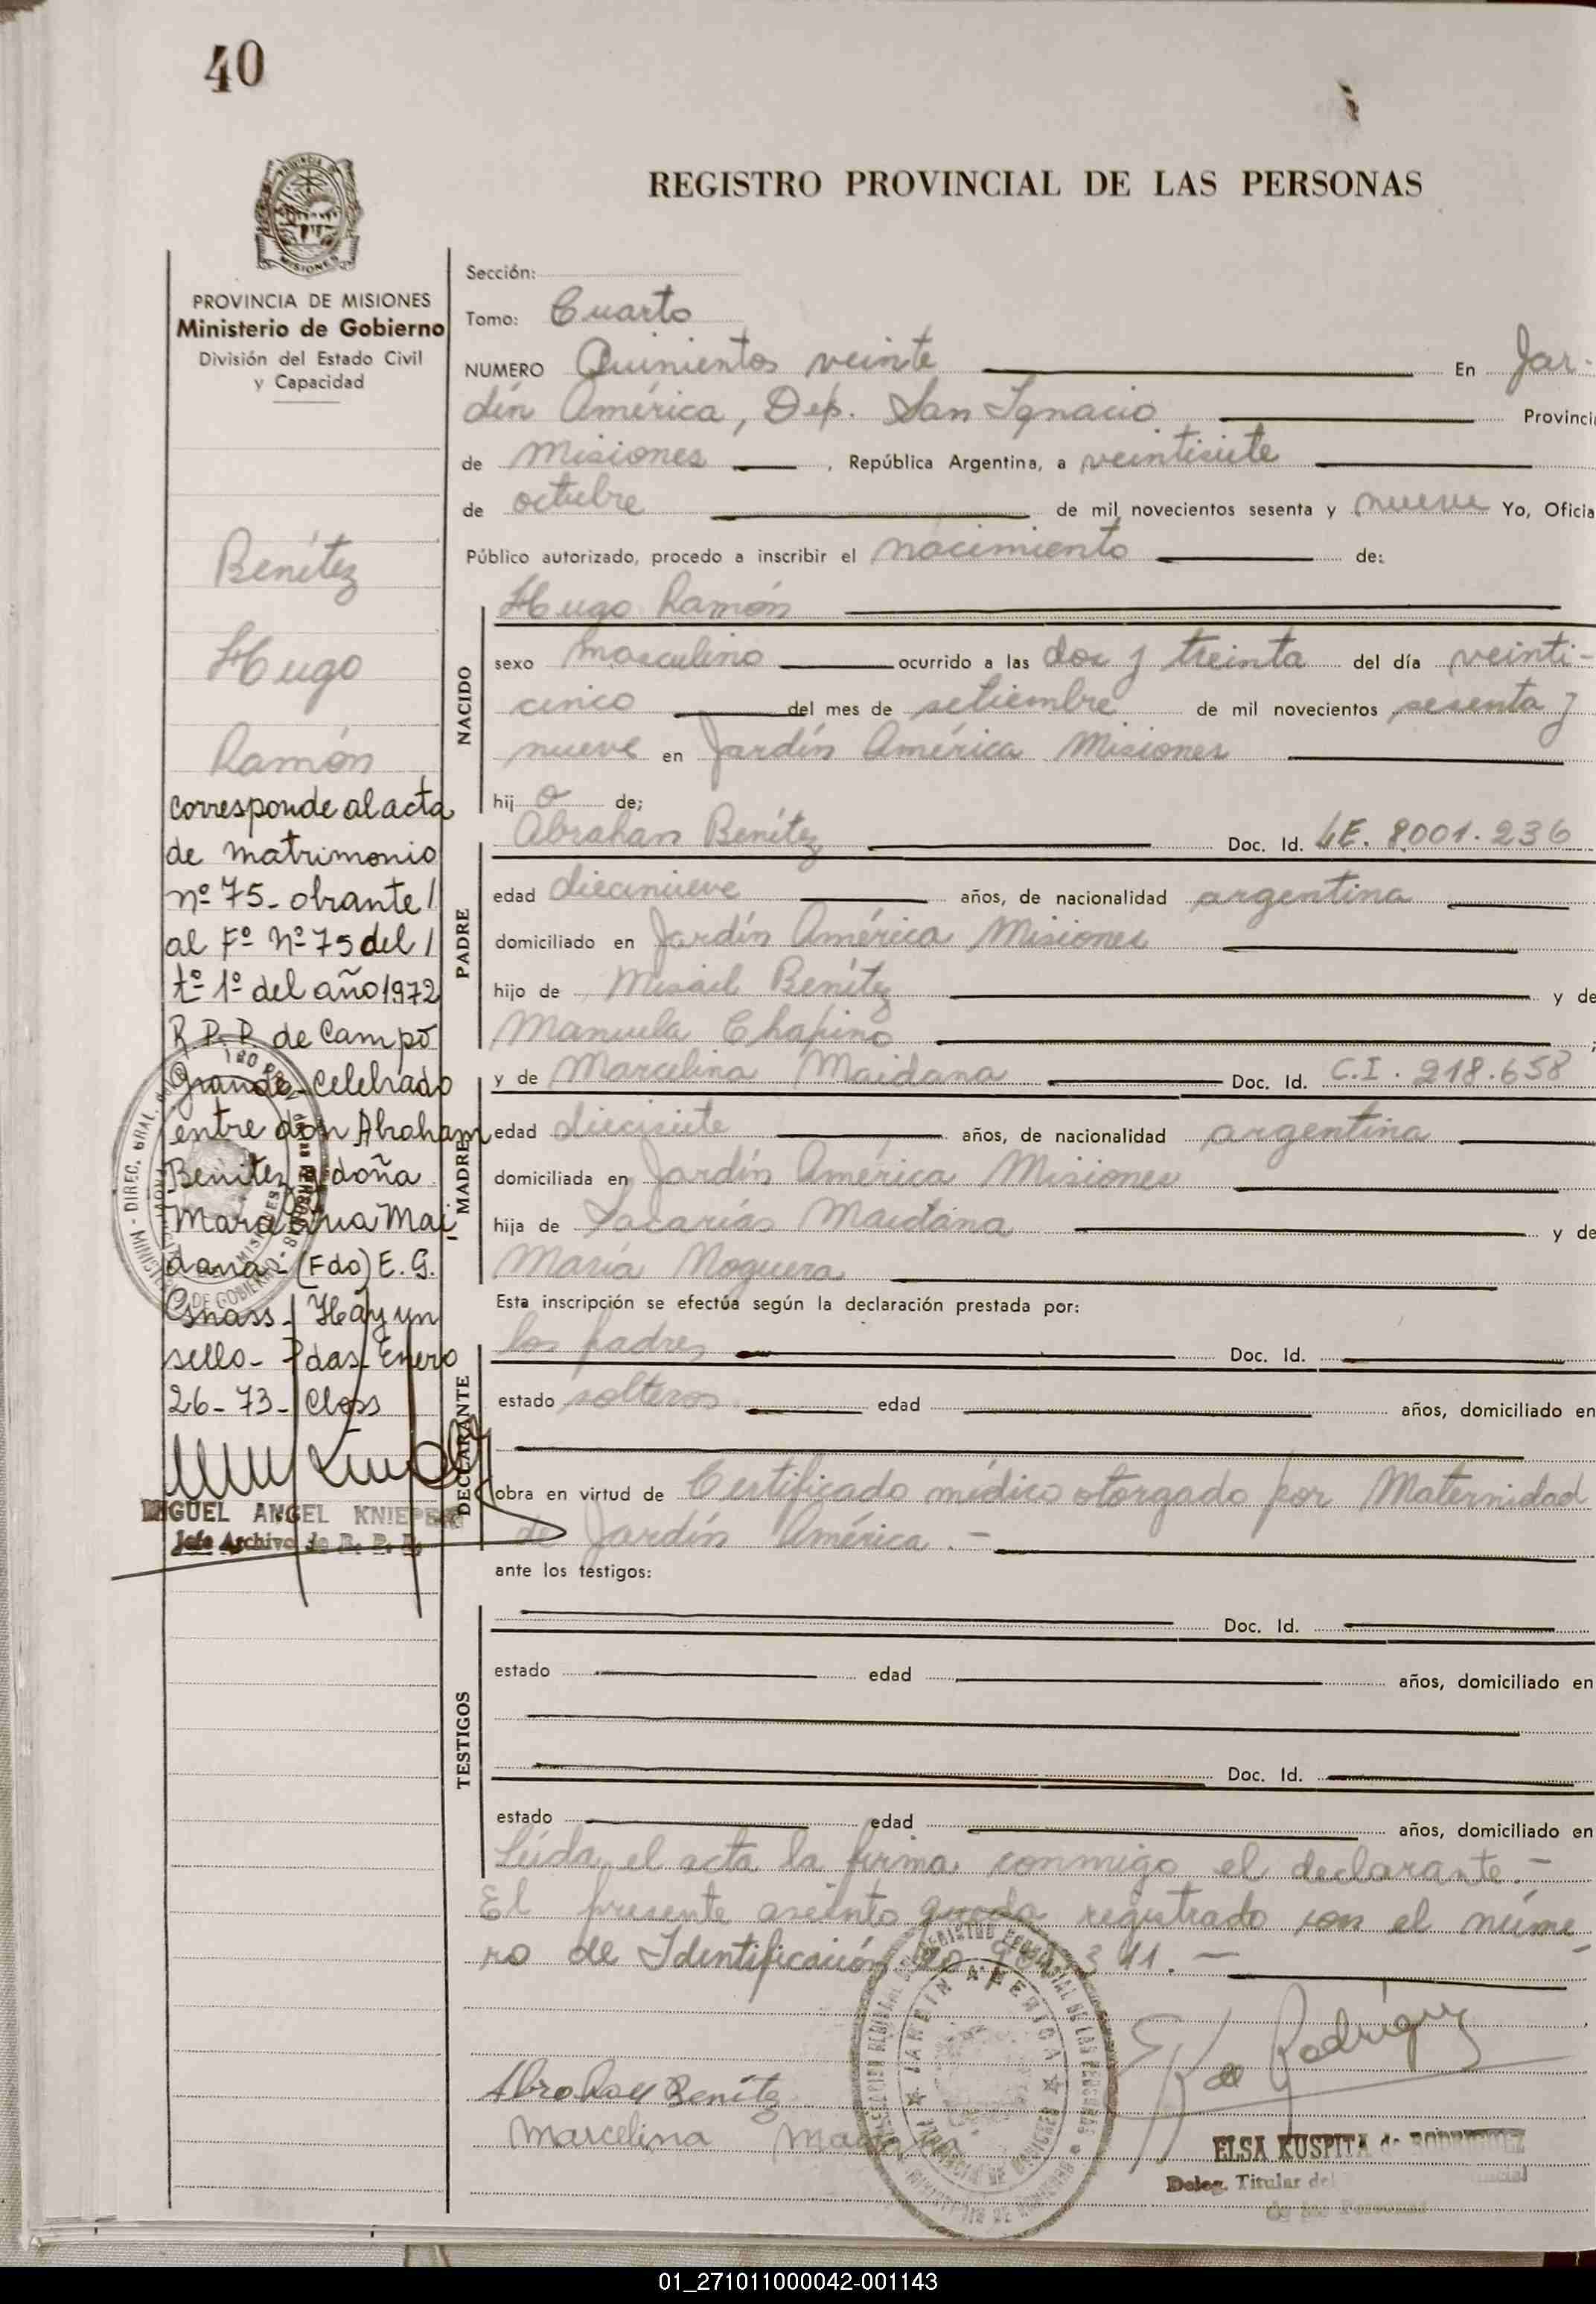 40
REGISTRO PROVINCIAL DE LAS PERSONAS
MISIONES
PROVINCIA DE MISIONES
Ministerio de Gobierno
División del Estado Civil
y Capacidad
Benítez
Hugo
Ramón
corresponde al acta
de matrimonio
nº 75- obrante/
al Fº Nº 75 del/
tº 1º del año 1972
R.P.P. de Campo
Grande- celebrado
entre don Abraham
Benitez y doña
Marcelina Mai
dana- (Fdo) E. G.
Hay un
sello- Pdas. Enero
26-73-
MIGUEL ANGEL KNIEPER
Jefe Archivo de R. P. P.
Sección:
Tomo: Cuarto
NUMERO Quinientos veinte En Jar-
dín América, Dep. San Ignacio Provinci
de Misiones , República Argentina, a veintisiete
de octubre de mil novecientos sesenta y nueve Yo, Oficia
Público autorizado, procedo a inscribir el nacimiento de:
Hugo Ramón
NACIDO
sexo masculino ocurrido a las dos y treinta del día veinti-
cinco del mes de setiembre de mil novecientos sesenta y
nueve en Jardín América Misiones
hij o de;
PADRE
Abrahan Benítez Doc. Id. LE. 8001.236
edad diecinueve años, de nacionalidad argentina
domiciliado en Jardín América Misiones
hijo de Misail Benítez y de
Manuela Chapino ;
MADRE
y de Marcelina Maidana Doc. Id. C.I. 218.658
edad diecisiete años, de nacionalidad argentina
domiciliada en Jardín América Misiones
hija de Sacarías Maidana y de
María Noguera
Esta inscripción se efectúa según la declaración prestada por:
DECLARANTE
los padres Doc. Id.
estado solteros edad años, domiciliado en
obra en virtud de Certificado médico otorgado por Maternidad
de Jardín América.-
ante los testigos:
TESTIGOS
Doc. Id.
estado edad años, domiciliado en
Doc. Id.
estado edad años, domiciliado en
Leída el acta la firma conmigo el declarante.-
El presente asiento queda registrado con el núme-
ro de Identificación
JARDIN AMERICA
Abrahan Benítez
Marcelina Maidana
Rodríguez
ELSA KUSPITA de RODRIGUEZ
Deleg. Titular del
de las Personas
01_271011000042-001143